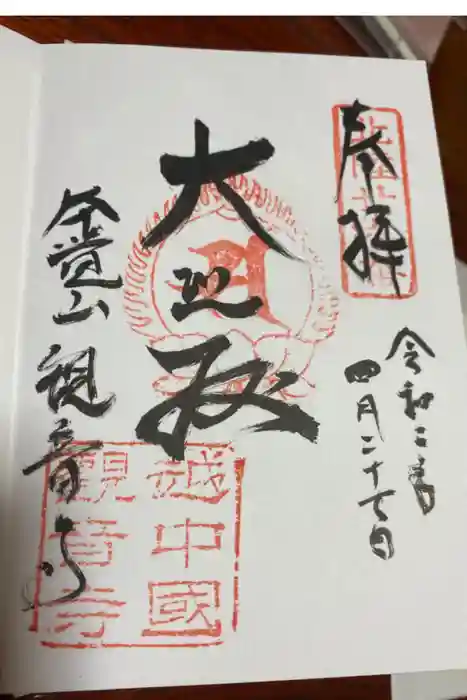 奉拝
令和二年
四月二十七日
大悲殿
観音寺
越中國
觀音寺